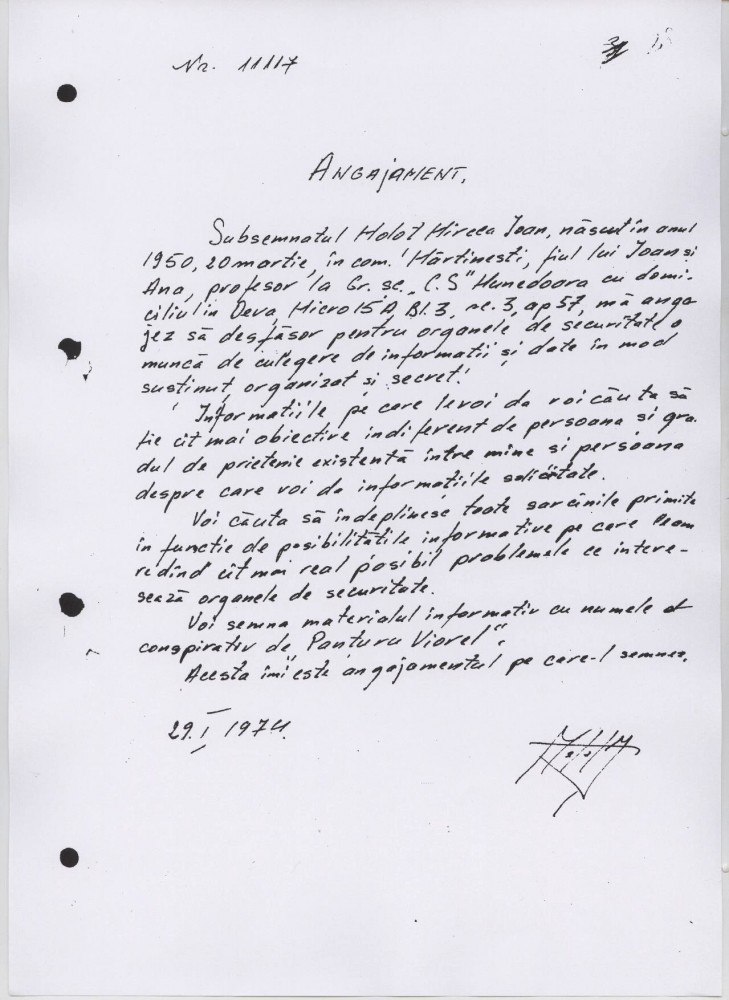 Nr. 11117
31
ANGAJAMENT.
Subsemnatul Holot Mircea Ioan, născut în anul
1950, 20 martie, în com. Mărtinesti, fiul lui Ioan si
Ana, profesor la Gr. sc. „C.S" Hunedoara cu domi-
ciliul in Deva, Micro 15 A, Bl. 3, sc. 3, ap 57, mă anga-
jez să desfăsor pentru organele de securitate o
muncă de culegere de informatii și date în mod
sustinut, organizat și secret.
Informatiile pe care le voi da voi căuta să
fie cit mai obiective indiferent de persoana si gra-
dul de prietenie existentă între mine si persoana
despre care voi da informatiile solicitate.
Voi căuta să îndeplinesc toate sarcinile primite
în functie de posibilitățile informative pe care le am
redind cît mai real posibil problemele ce intere-
sează organele de securitate.
Voi semna materialul informativ cu numele
conspirativ de „Panturu Viorel".
Acesta îmi este angajamentul pe care-l semnez.
29. I 1974.